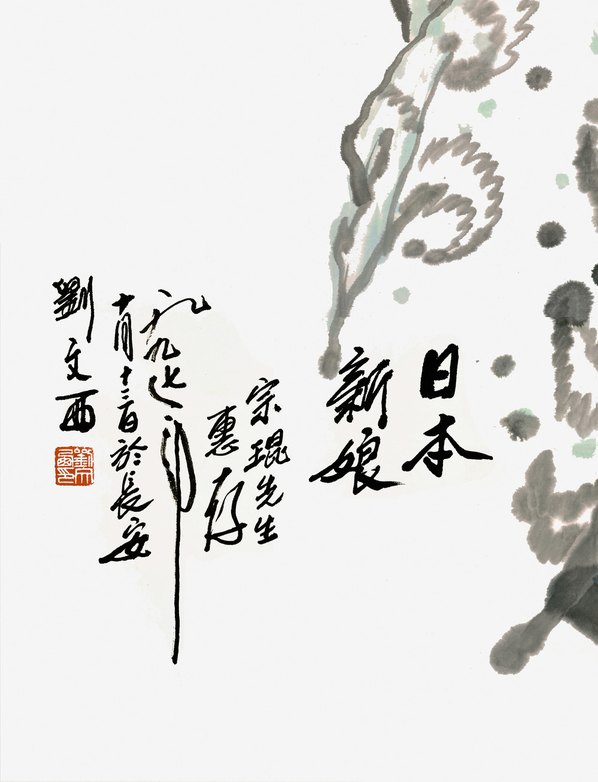 日本
新娘
宗琨先生
惠存
一九九七年
十月十三日於長安
劉文西